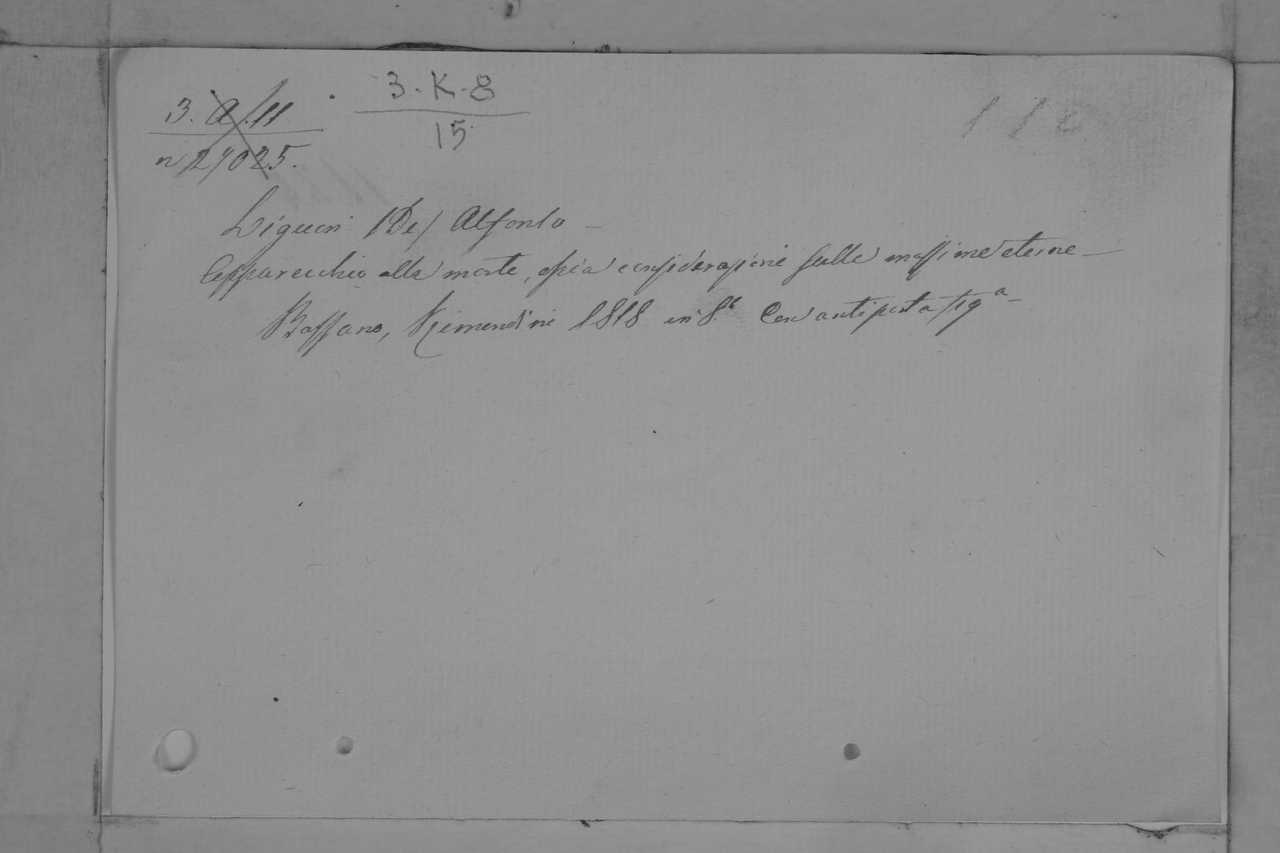 3. a. 11
n 27025.
3-K-8
15
Liguori (De) Alfonso
Apparecchio alla morte, ossia considerazioni sulle massime eterne
Bassano, Remondini 1818 in 8.º Con antiporta